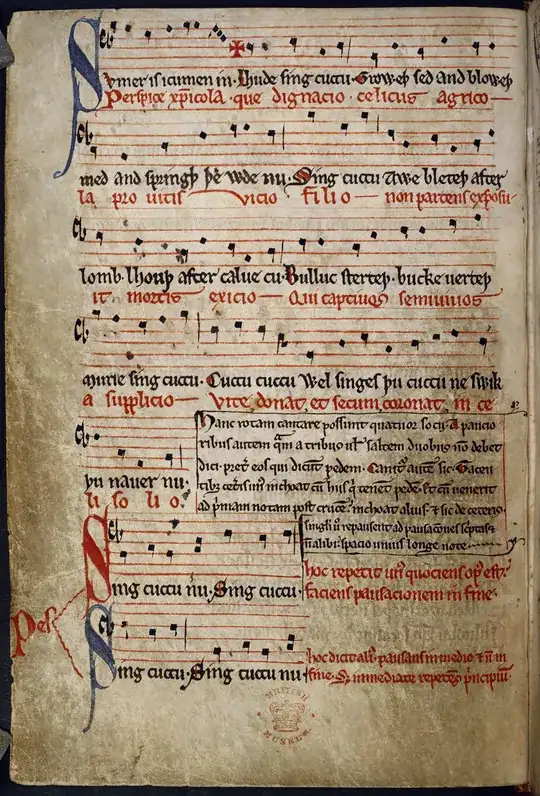 Sumer is icumen in. Lhude sing cuccu. Groweþ sed and bloweþ
Perspice xp̄icola. que dignacio. celicus agrico
med and springþ þe wde nu. Sing cuccu Awe bleteþ after
la pro uitis vicio filio non parcens exposu
lomb. lhouþ after calue cu. Bulluc sterteþ. bucke uerteþ
it mortis exicio Qui captiuos semiuiuos
murie sing cuccu. Cuccu cuccu Wel singes þu cuccu ne swik
a supplicio Vite donat et secum coronat in ce
þu nauer nu.
li solio.
Hanc rotam cantare possunt quatuor socij. A paucio
ribus autem qm̄ a tribus ul saltem duobus nō debet
dici. pret̄ eos qui dicūt pedem. Canit̄ aut̄ sic. Tacen
tibꝫ cet̄is un inchoat cū hijs q tenēt pede. Et cū uenerit
ad pimam notam post cruce. inchoat alius. & sic de ceteris.
singli u repausent ad pausacōnes scptas &
nō alibi. spacio unius longe note.
Pes
Sing cuccu nu. Sing cuccu.
hoc repetit un quociens opꝰ est.
faciens pausacionem in fine.
Sing cuccu. Sing cuccu nu
hoc dicit alius pausans in medio & nō in
fine. Sꝫ immediate repetēs pincipiū.
BRITISH
MUSEUM